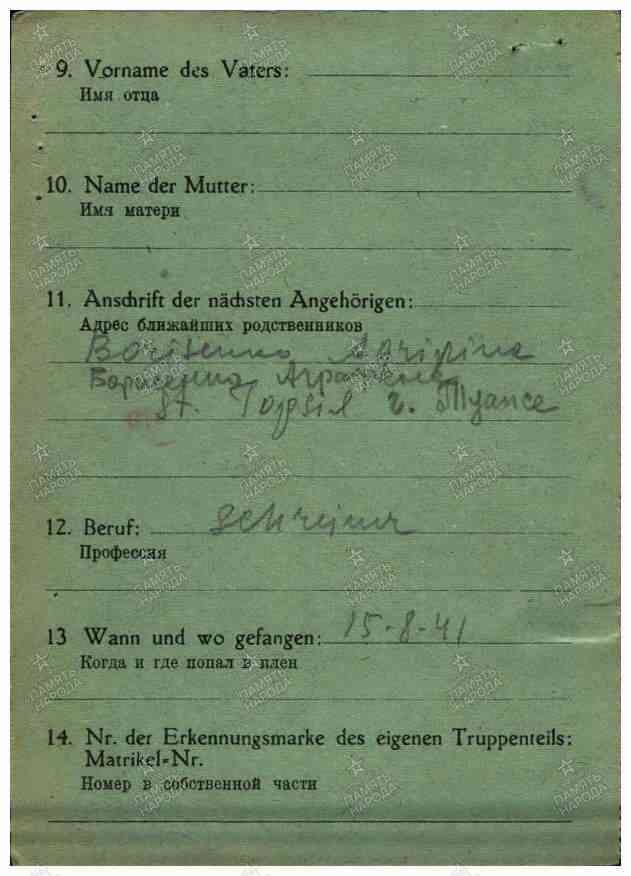 9. Vorname des Vaters:
Имя отца
10. Name der Mutter:
Имя матери
11. Anschrift der nächsten Angehörigen:
Адрес ближайших родственников
Borisenko Agripina
Борисенко
St. г. Туапсе
12. Beruf: Schreiner
Профессия
13 Wann und wo gefangen: 15-8-41
Когда и где попал в плен
14. Nr. der Erkennungsmarke des eigenen Truppenteils:
Matrikel-Nr.
Номер в собственной части
ПАМЯТЬ НАРОДА